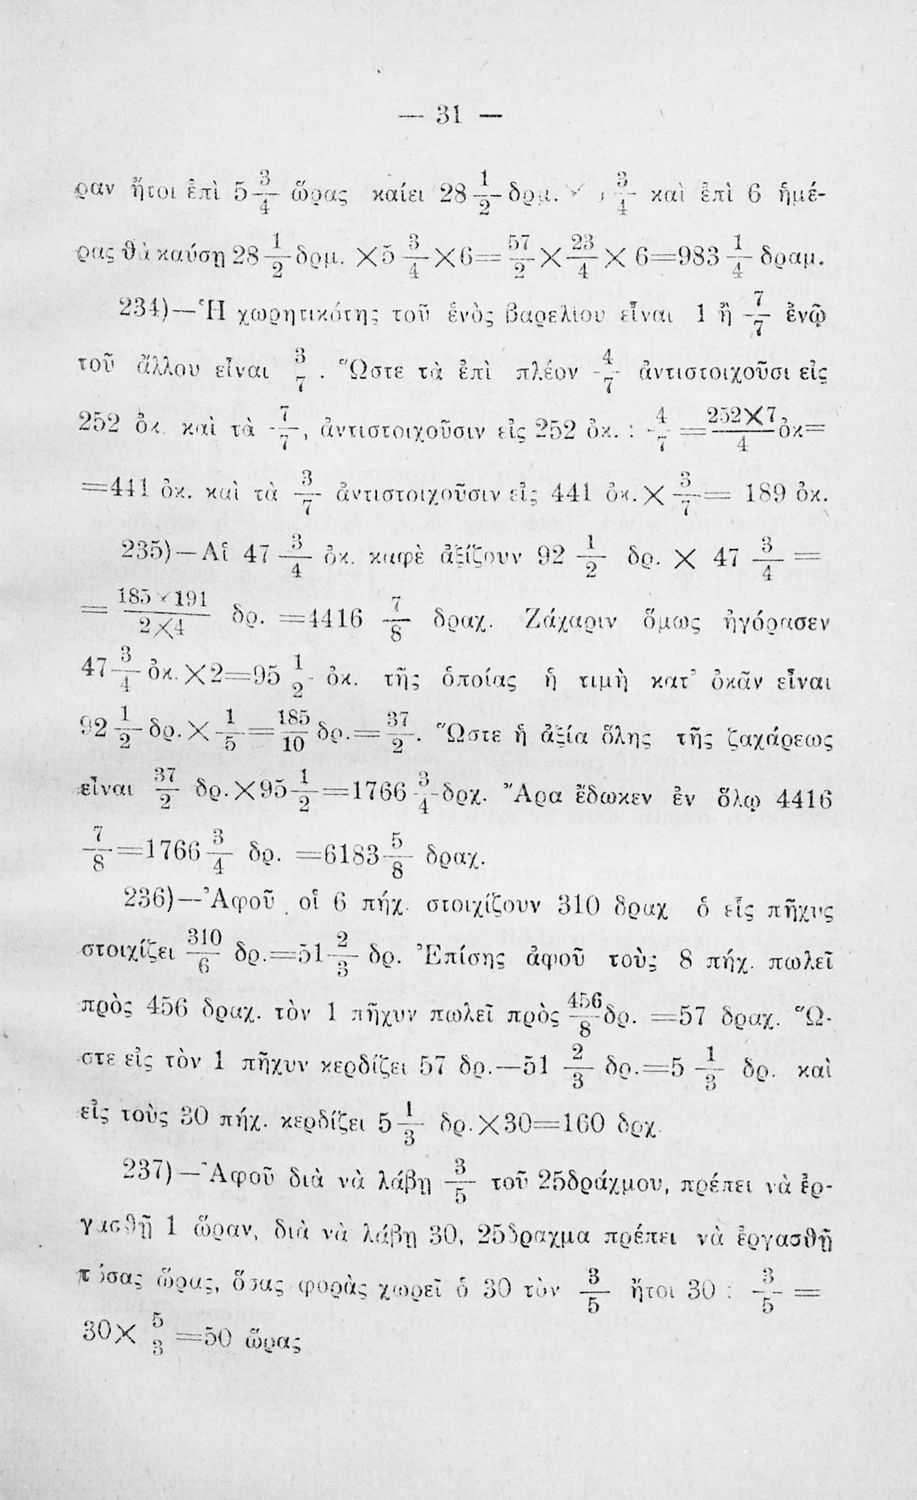 — 31 —
ραν ἤτοι ἐπὶ 5 3/4 ὥρας καίει 28 1/2 δρμ. × 5 3/4 καὶ ἐπὶ 6 ἡμέ-
ρας θὰ καύσῃ 28 1/2 δρμ. ×5 3/4 ×6= 57/2 × 23/4 × 6=983 1/4 δραμ.
234)—Ἡ χωρητικότης τοῦ ἑνὸς βαρελίου εἶναι 1 ἢ 7/7 ἐνῷ
τοῦ ἄλλου εἶναι 3/7 . Ὥστε τὰ ἐπὶ πλέον 4/7 ἀντιστοιχοῦσι εἰς
252 ὀκ. καὶ τὰ 7/7, ἀντιστοιχοῦσιν εἰς 252 ὀκ. : 4/7 = 252×7/4 ὀκ=
=441 ὀκ. καὶ τὰ 3/7 ἀντιστοιχοῦσιν εἰς 441 ὀκ.× 3/7 = 189 ὀκ.
235)—Αἱ 47 3/4 ὀκ. καφὲ ἀξίζουν 92 1/2 δρ. × 47 3/4 =
= 185×191/2×4 δρ. =4416 7/8 δραχ. Ζάχαριν ὅμως ἠγόρασεν
47 3/4 ὀκ.×2=95 1/2 ὀκ. τῆς ὁποίας ἡ τιμὴ κατ' ὀκᾶν εἶναι
92 1/2 δρ.× 1/5 = 185/10 δρ.= 37/2. Ὥστε ἡ ἀξία ὅλης τῆς ζαχάρεως
εἶναι 37/2 δρ.×95 1/2 =1766 3/4 δρχ. Ἄρα ἔδωκεν ἐν ὅλῳ 4416
7/8 =1766 3/4 δρ. =6183 5/8 δραχ.
236)—Ἀφοῦ οἱ 6 πήχ. στοιχίζουν 310 δραχ ὁ εἷς πῆχυς
στοιχίζει 310/6 δρ.=51 2/3 δρ. Ἐπίσης ἀφοῦ τοὺς 8 πήχ. πωλεῖ
πρὸς 456 δραχ. τὸν 1 πῆχυν πωλεῖ πρὸς 456/8 δρ. =57 δραχ. Ὥ-
στε εἰς τὸν 1 πῆχυν κερδίζει 57 δρ.—51 2/3 δρ.=5 1/3 δρ. καὶ
εἰς τοὺς 30 πήχ. κερδίζει 5 1/3 δρ.×30=160 δρχ.
237)—Ἀφοῦ διὰ νὰ λάβῃ 3/5 τοῦ 25δράχμου, πρέπει νὰ ἐρ-
γασθῇ 1 ὥραν, διὰ νὰ λάβῃ 30, 25δραχμα πρέπει νὰ ἐργασθῇ
τόσας ὥρας, ὅσας φορὰς χωρεῖ ὁ 30 τὸν 3/5 ἤτοι 30 : 3/5 =
30× 5/3 =50 ὥρας